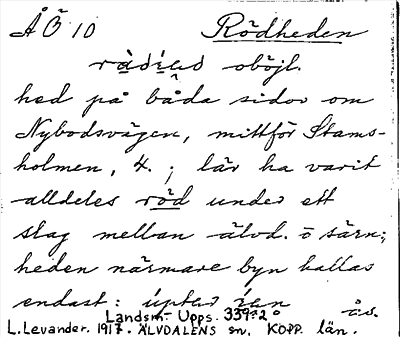 ÅÖ 10 Rödheden
oböjl.
hed på båda sidor om
Nybodsvägen, mittför Stams-
holmen, 4.; lär ha varit
alldeles röd under ett
slag mellan älvd. o särn;
heden närmare byn kallas
endast:
Landsm. Upps. 339:2
L. Levander. 1917. ÄLVDALENS sn. KOPP. län.